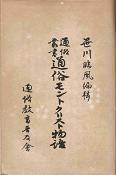 笹川臨風編輯
通俗
叢書
通俗モンテクリスト物語
通俗教育普及會